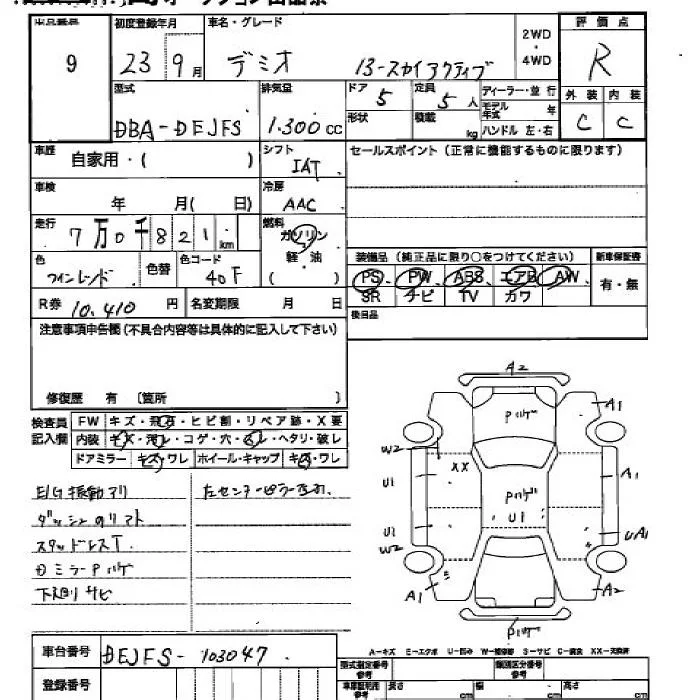 出品番号 初度登録年月 車名・グレード 2WD・4WD 評価点
9 23 9月 デミオ 13-スカイアクティブ R
型式 排気量 ドア 5 定員 5人 ディーラー・並行 外装 内装
DBA-DEJFS 1.300cc 形状 積載 kg モデル年式 年 ハンドル 左・右 C C
車歴 自家用・( ) シフト IAT セールスポイント(正常に機能するものに限ります)
車検 年 月( 日) 冷房 AAC
走行 7万0千821km 燃料 ガソリン 軽・油 ( )
色 色替 色コード 40F
装備品(純正品に限り○をつけてください) 新車保証書
PS PW ABS エアB AW 有・無
SR ナビ TV カワ
R券 10.410円 名変期限 月 日 後日品
注意事項申告欄(不具合内容等は具体的に記入して下さい)
修復歴 有 〔箇所 〕
検査員記入欄 FW キズ・飛石・ヒビ割・リペア跡・X要
内装 キズ・汚レ・コゲ・穴・スレ・ヘタリ・破レ
ドアミラー キズ・ワレ ホイール・キャップ キズ・ワレ
E/G振動アリ
スタッドレスT.
ミラーPハゲ
下廻りサビ
A2
Pハゲ
A1 A1
W2 XX
U1 Pハゲ A1
U1 U1 UA1
W2
A1 A2
Pハゲ
A-キズ E-エクボ U-凹み W-補修跡 S-サビ C-腐食 XX-交換済
車台番号 DEJFS-103047
型式指定番号 参考 類別区分番号 参考
登録番号 長さ cm 幅 cm 高さ cm